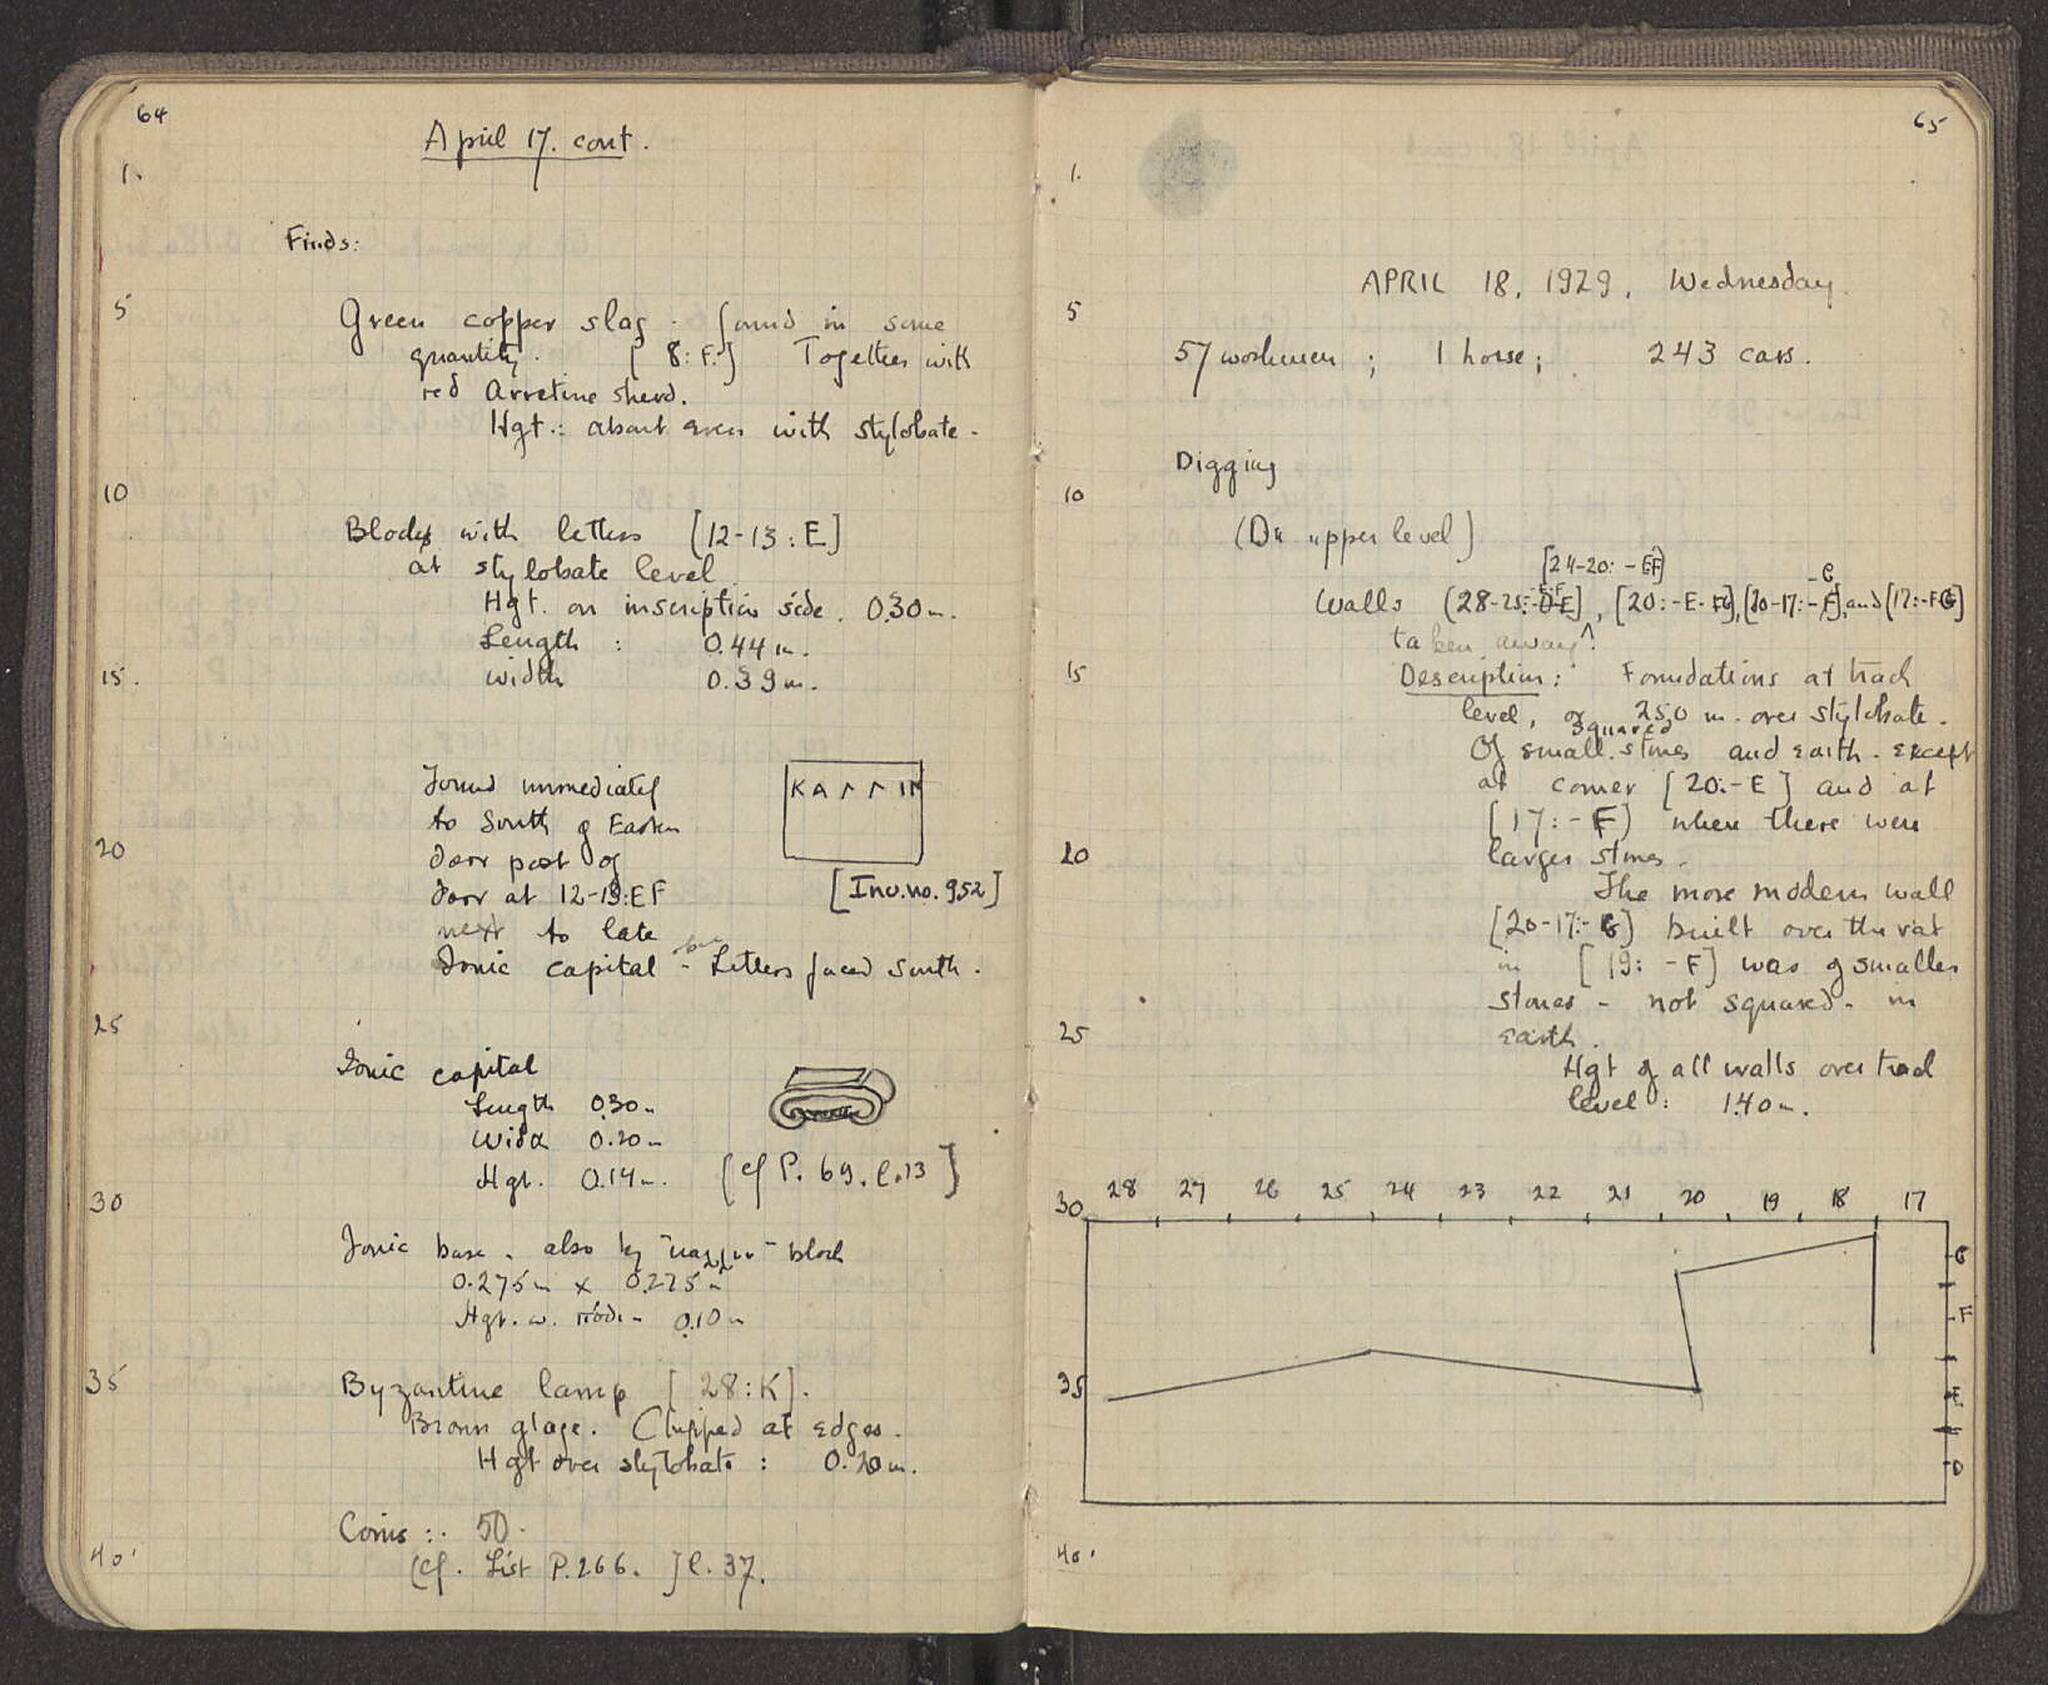 64
April 17. cont.
1.
Finds:
5
Green copper slag - found in some
quantity. [8:F.] Together with
red Arretine sherd.
Hgt.: about even with stylobate -
10
Block with letters [12-13:E]
at stylobate level
Hgt. on inscription side. 0.30 m.
Length : 0.44 m.
15.
width 0.39 m.
Found immediately
to South of Eastern
20
door post of
door at 12-13:EF
next to late
Ionic capital - Letters faced south.
ΚΑΛΛΙΝ
[Inv.no. 952]
25
Ionic capital
Length 0.30 m
Width 0.20 m
Hgt. 0.14 m. [cf P. 69. l.13]
30
Ionic base - also by block
0.275 m x 0.225 m
Hgt. w. 0.10 m
35
Byzantine lamp [28:K].
Brown glaze. Chipped at edges.
Hgt over stylobate : 0.20 m.
Coins :. 50.
40.
(cf. List P.266. ] l. 37.
65
1.
APRIL 18, 1929, Wednesday.
5
57 workmen ; 1 horse; 243 cars.
Digging
10
(On upper level)
[24-20: - EF]
Walls (28-25:-D-E], [20:-E-FG], [20-17:-F], and [17:-FG]
taken away.
15
Description: Foundations at track
level, or 2.50 m. over stylobate.
squared
Of small stones and earth - except
at corner [20:-E] and at
[17:-F] where there were
20
larger stones.
The more modern wall
[20-17:-G] built over the vat
in [19: -F] was of smaller
stones - not squared - in
25
earth.
Hgt of all walls over track
level : 1.40 m.
30
28 27 26 25 24 23 22 21 20 19 18 17
G
F
35
E
D
40.